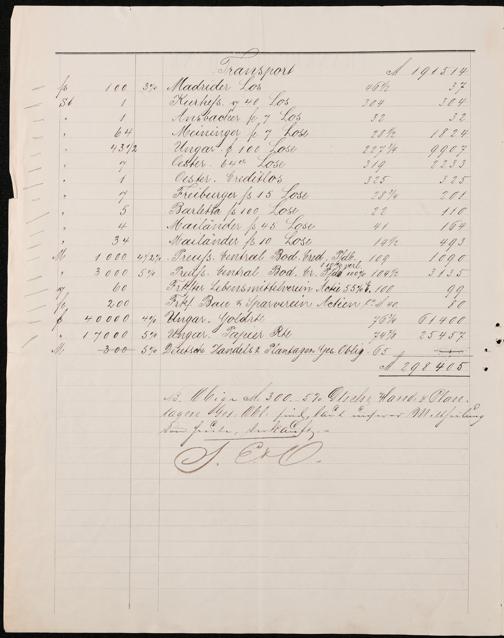 Transport M 191514
fs 100 3% Madrider Los 46½ 37
St 1 Kurhess. 40 Los 304 304
" 1 Ansbacher f 7 Los 32 32
" 64 Meininger f 7 Lose 28½ 1824
" 43½ Ungar. f 100 Lose 227¾ 9907
" 7 Oester. 64er Lose 319 2233
" 1 Oester. Creditlos 325 325
" 7 Freiburger fs 15 Lose 28¾ 201
" 5 Barletta fs 100 Lose 22 110
" 4 Mailänder fs 45 Lose 41 164
" 34 Mailänder fs 10 Lose 14½ 493
M 1000 4½% Preuss. Central Bod. Cred. Pfdb. 109 1090
" 3000 5% Preuss. Central Bod. Cr. Pfdb 104½ 3135
60 Frkfter Lebensmittelverein Actie 100 99
200 Frkf. Bau & Sparverein Actien
f 40000 4% Ungar. Goldrte 76¾ 61400
" 17000 5% Ungar. Papier Rte 74¾ 25457
M 300 5% Deutsch Handels & Plantagen Ges. Oblig. 65
M 298405
NB. Obige M 300.- 5% Dtsche Hand. & Plan-
tagen Ges. Obl. sind, laut unserer Mittheilung
von heute, verkauft.-